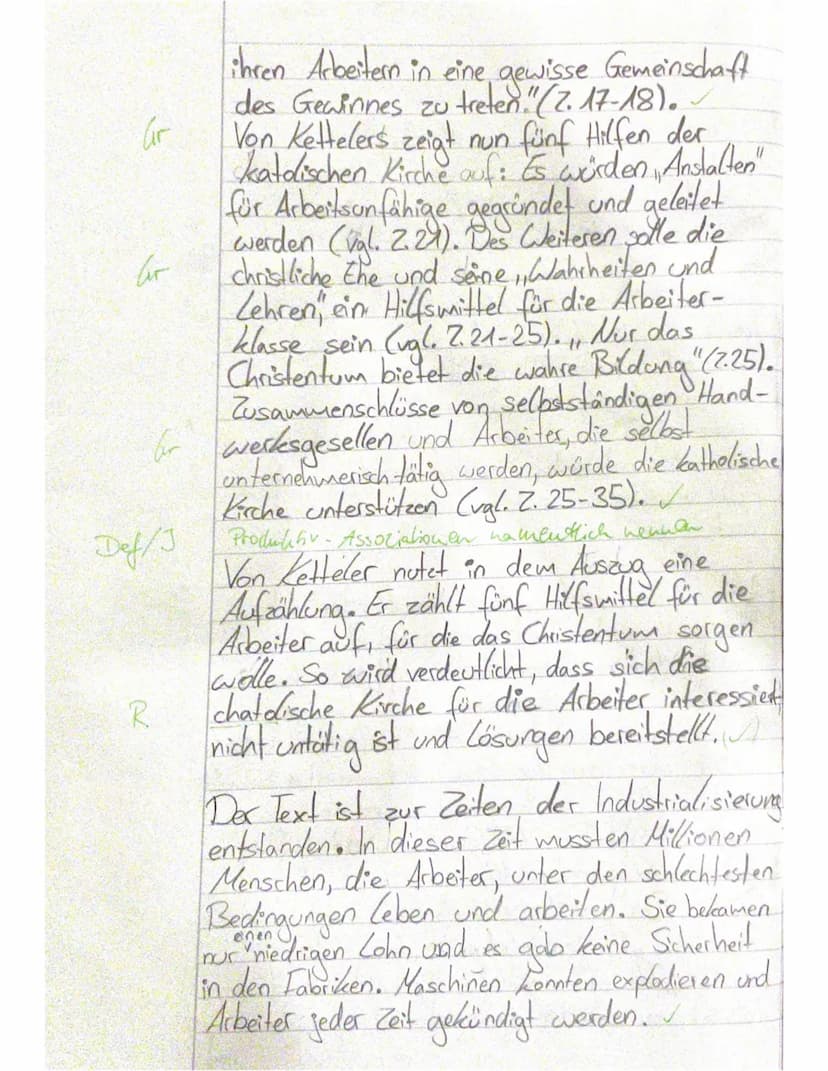 ihren Arbeitern in eine gewisse Gemeinschaft
des Gewinnes zu treten."(Z. 17-18). ✓
Gr Von Kettelers zeigt nun fünf Hilfen der
katolischen Kirche auf: Es würden „Anstalten"
für Arbeitsunfähige gegründet und geleitet
werden (vgl. Z.21). Des Weiteren solle die
Gr christliche Ehe und seine „Wahrheiten und
Lehren," ein Hilfsmittel für die Arbeiter-
klasse sein (vgl. Z.21-25). „Nur das
Christentum bietet die wahre Bildung"(Z.25).
Zusammenschlüsse von selbstständigen Hand-
Gr werksgesellen und Arbeiter, die selbst
unternehmerisch tätig werden, würde die katholische
Kirche unterstützen (vgl. Z. 25-35). ✓
Def/I Produktiv-Assoziationen namentlich nennen
Von Ketteler nutzt in dem Auszug eine
Aufzählung. Er zählt fünf Hilfsmittel für die
Arbeiter auf, für die das Christentum sorgen
wolle. So wird verdeutlicht, dass sich die
R chatolische Kirche für die Arbeiter interessiert,
nicht untätig ist und Lösungen bereitstellt. ✓
Der Text ist zur Zeiten der Industrialisierung
entstanden. In dieser Zeit mussten Millionen
Menschen, die Arbeiter, unter den schlechtesten
Bedingungen leben und arbeiten. Sie bekamen
nur einen niedrigen Lohn und es gab keine Sicherheit
in den Fabriken. Maschinen konnten explodieren und
Arbeiter jeder Zeit gekündigt werden. ✓